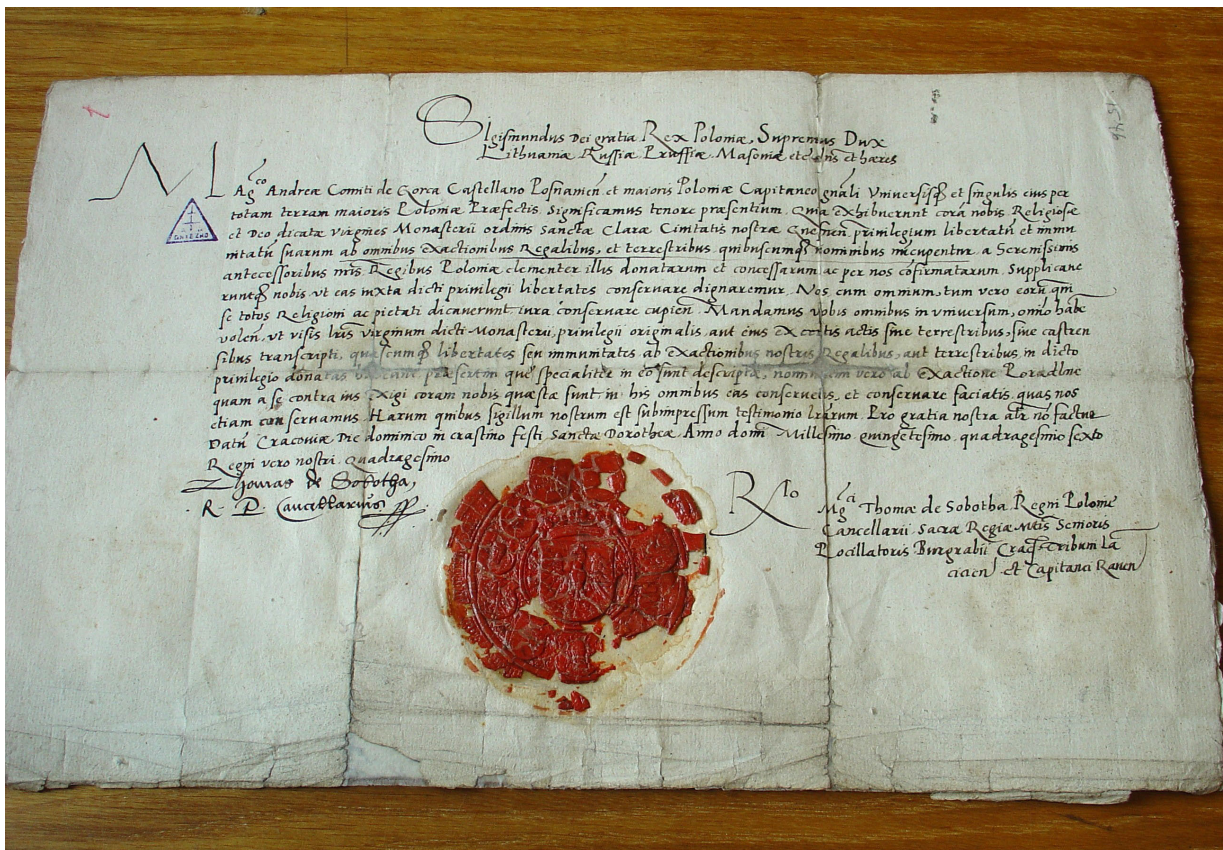 Sigismundus Dei gratia Rex Poloniæ, Supremus Dux
Lithuaniæ Russiæ Prussiæ Masoniæ etc dns et hæres
Mag<sup>co</sup> Andreæ Comiti de Gorca Castellano Posnanien et maioris Poloniæ Capitaneo gnãli Vniversisq et singulis eius per
totam terram maioris Poloniæ Præfectis. Significamus tenore præsentium. Quia exhibuerunt corã nobis Religiosæ
et Deo dicatæ virgines Monasterii ordinis Sanctæ Claræ Civitatis nostræ Gnesnen privilegium libertatũ et immu
nitatũ suarum ab omnibus exactionibus Regalibus, et terrestribus quibuscumq nominibus nũcupentur, a Serenissimis
antecessoribus nr̃is Regibus Poloniæ clementer illis donatarum et concessarum ac per nos cõfirmatarum. Supplicave
runtq nobis vt eas iuxta dicti privilegii libertates conservare dignaremur. Nos cum omnium, tum vero eorũ qui
se totos Religioni ac pietati dicaverunt iura conservare cupien. Mandamus vobis omnibus in vniversum, omnõ habe
volen, vt visis lr̃is virginum dicti Monasterii, privilegii originalis, aut eius ex certis actis sive terrestribus, sive castren
sibus transcripti, quascumq libertates seu immunitates, ab exactionibus nostris Regalibus, aut terrestribus, in dicto
privilegio donatas præsertim quę specialiter in eo sunt descriptæ, vero ab exactione Poradlne
quam a se contra ius exigi coram nobis quæstæ sunt in his omnibus eas conservetis, et conservare faciatis, quas nos
etiam conservamus. Harum quibus sigillum nostrum est subimpressum testimonio lr̃arum. Pro gratia nostra alr̃ nõ factur
Datũ Cracoviæ Die dominico in crastino festi Sanctæ Dorotheæ Anno domi Millesimo quingẽtesimo, quadragesimo sexto
Regni vero nostri quadragesimo
Thomas de Sobotha,
R. P. Cancellarius
R<sup>lo</sup> Mg<sup>ci</sup> Thomæ de Sobotha Regni Poloniæ
Cancellarii Sacræ Regiæ Mtis Senioris
Pocillatoris Burgrabii Crac Tribuni La
ncicien et Capitanei Raven
1546